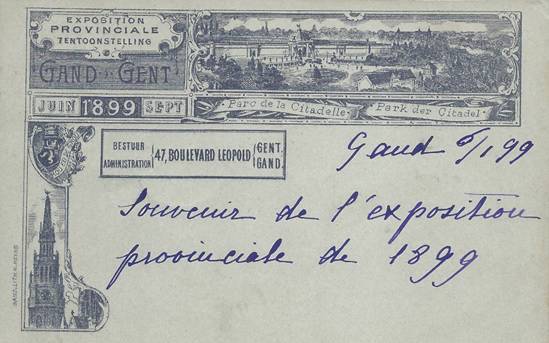 EXPOSITION
PROVINCIALE
TENTOONSTELLING
GAND GENT
JUIN 1899 SEPT
Parc de la Citadelle Park der Citadel
BESTUUR ADMINISTRATION 47, BOULEVARD LEOPOLD GENT. GAND.
Gand 99
Souvenir de l'exposition
provinciale de 1899